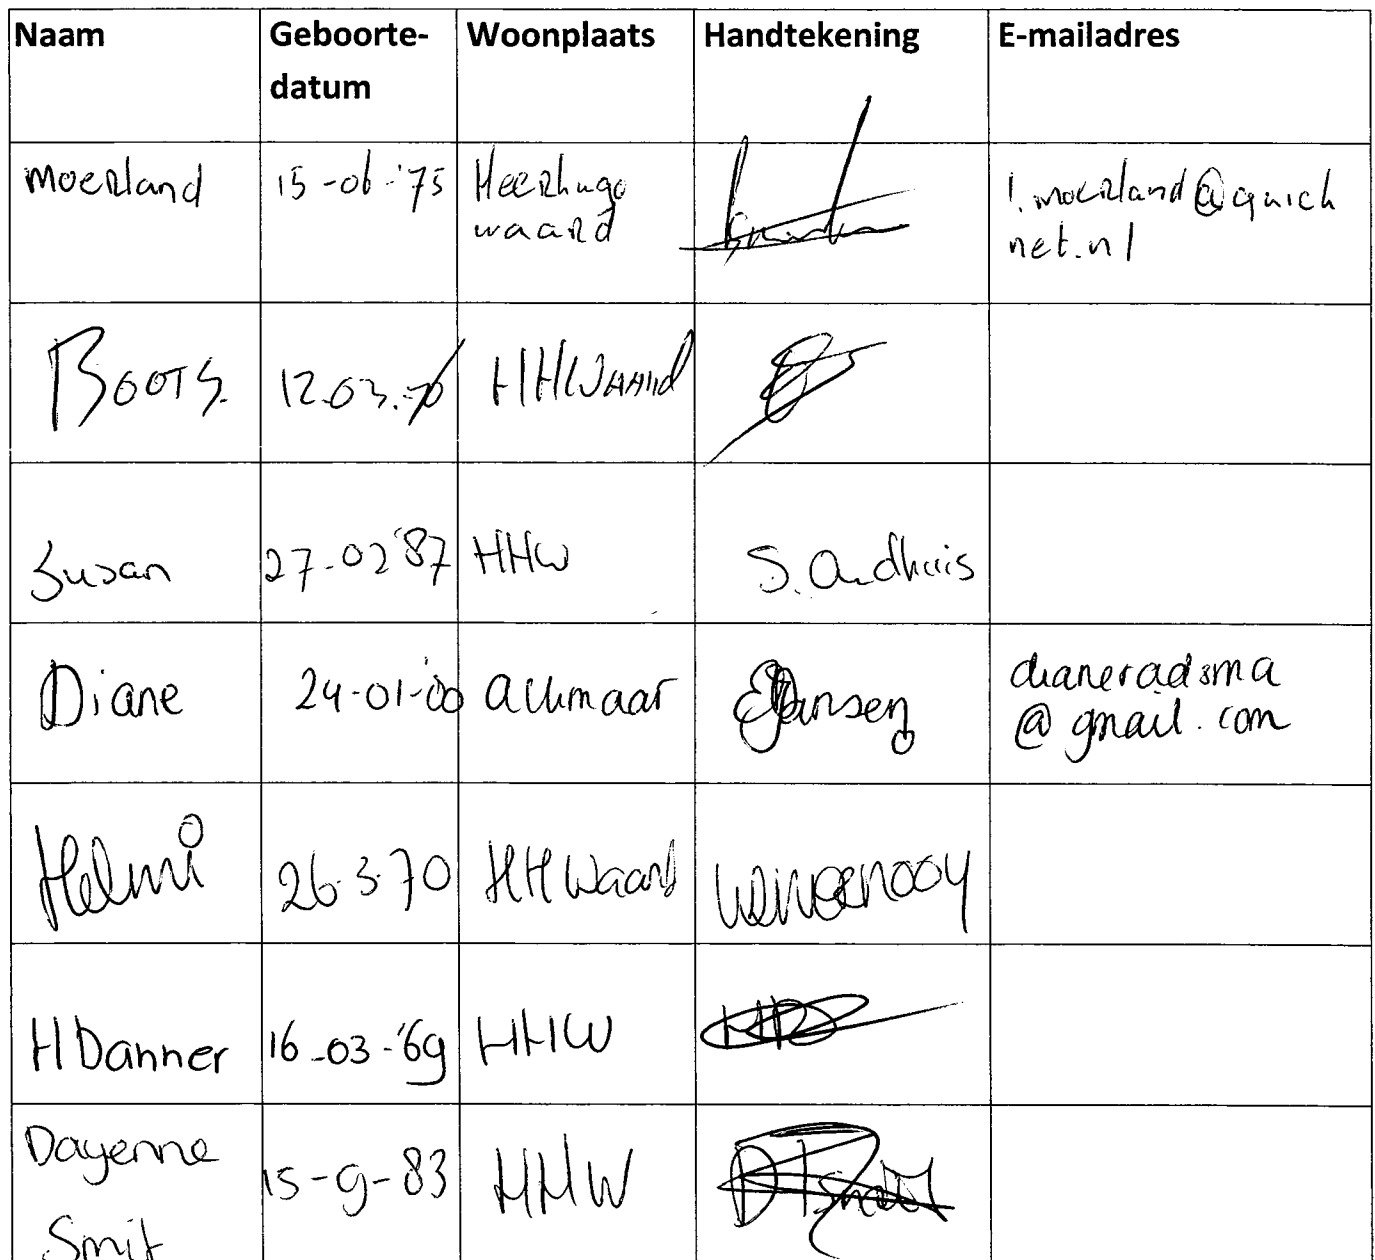 Naam Geboorte- Woonplaats Handtekening E-mailadres
datum
Moerland 15-06-'75 Heerhugo l.moerland@quick
waard net.nl
Boots. 12.03.70 HHWaard
Susan 27-02'87 HHW S. Oudhuis
Diane 24-01-'00 Alkmaar Jansen dianeradsma
@gmail.com
Helmi 26-3-70 HHWaard
H Danner 16-03-'69 HHW HD
Dayenne 15-9-83 HHW D Smit
Smit